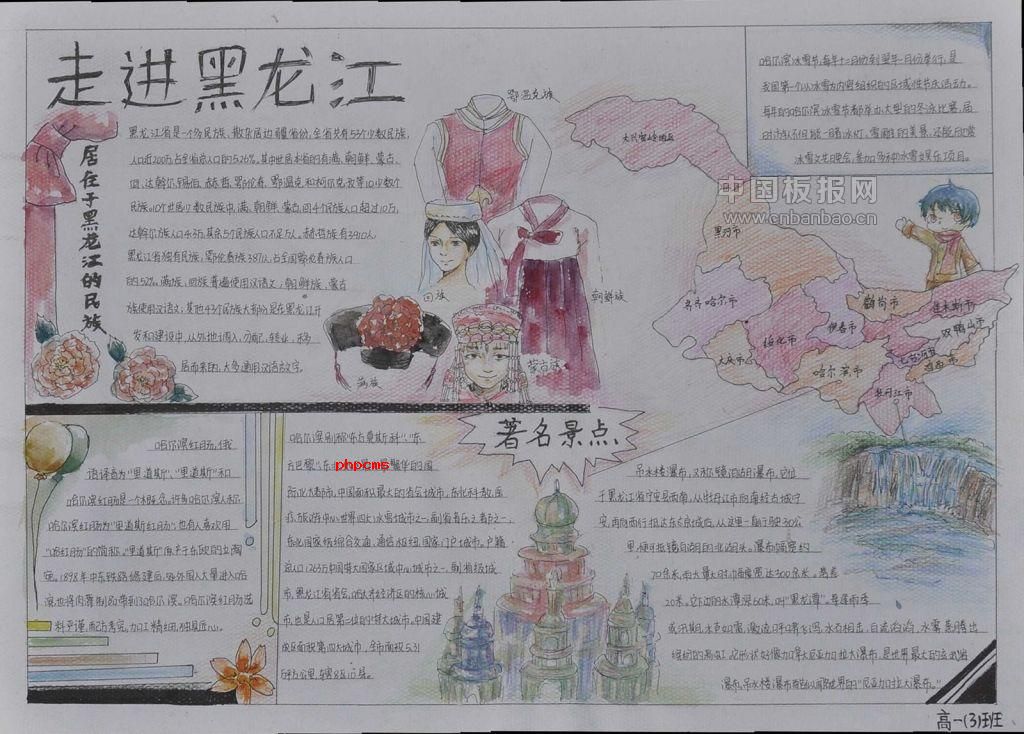 走进黑龙江
居住于黑龙江的民族
黑龙江省是一个多民族、散杂居边疆省份,全省共有53个少数民族,
人口近200万,占全省总人口的5.26%。其中世居本省的有满、朝鲜、蒙古、
回、达斡尔、锡伯、赫哲、鄂伦春、鄂温克和柯尔克孜等10个少数
民族。10个世居少数民族中,满、朝鲜、蒙古、回4个民族人口超过10万,
达斡尔族人口4.3万,其余5个民族人口不足万人。赫哲族有3910人,
黑龙江省独有民族,鄂伦春族3871人,占全国鄂伦春族人口
的52%。满族、回族普遍使用汉语文,朝鲜族、蒙古
族使用汉语文,其他43个民族大部分是在黑龙江开
发和建设中,从外地调入、分配、转业、
居而来的,大多通用汉语言文字。
鄂温克族
回族
朝鲜族
满族
蒙古族
哈尔滨冰雪节,每年十二月份到翌年一月份举行,是
我国第一个以冰雪为内容组织的区域性节庆活动。
每年的哈尔滨冰雪节都举办大型的冬泳比赛,届
时市人不但能一睹冰灯、雪雕的美景,还能欣赏
冰雪文艺晚会,参加多种冰雪娱乐项目。
中国板报网
www.cnbanbao.cn
大兴安岭地区
黑河市
齐齐哈尔市
鹤岗市
佳木斯市
双鸭山市
伊春市
绥化市
七台河市
鸡西市
大庆市
哈尔滨市
牡丹江市
著名景点
哈尔滨红肠,俄
语译音为“里道斯”、“里道斯”和
哈尔滨红肠是一个概念。许多哈尔滨人称
哈尔滨红肠为“里道斯红肠”,也有人喜欢用
“哈红肠”的简称。“里道斯”原产于东欧的立陶
宛。1898年中东铁路修建后,外国人大量进入哈
滨,也将肉灌制品带到了哈尔滨。哈尔滨红肠选
料严谨,配方考究,加工精细,独具匠心。
哈尔滨别称“东方莫斯科”、“东
方巴黎”、
phpcms
际化大都市,中国面积最大的省会城市,东北科教、医
疗、旅游中心,世界四大冰雪城市之一,副省音乐之都之一,
东北国家级综合交通、通信枢纽,国家门户城市。户籍
总人口1263万中国特大国家区域中心城市之一,副省级城
市,黑龙江省省会,哈大齐经济区的核心城
市,也是人口居第二位的特大城市,中国建
成区面积第四大城市,全市面积5.31
万平方公里,辖8区10县。
吊水楼瀑布,又称镜泊湖瀑布,它位
于黑龙江省宁安县西南,从牡丹江市向南经古城宁
安,再向西行抵达东京城后,从这里一直行驶30公
里,便可抵镜泊湖的北湖头。瀑布幅宽约
70余米,雨大量大时,幅宽达300余米。落差
20米。它下边的水潭深60米,叫“黑龙潭”。每逢雨季
或汛期,水声如雷,激流呼啸飞泻,水石相击,白流滔滔,水雾蒸腾出
缤纷的彩虹,它形状好像加拿大尼亚加拉大瀑布,是世界最大的玄武岩
瀑布。吊水楼瀑布
高一(3)班